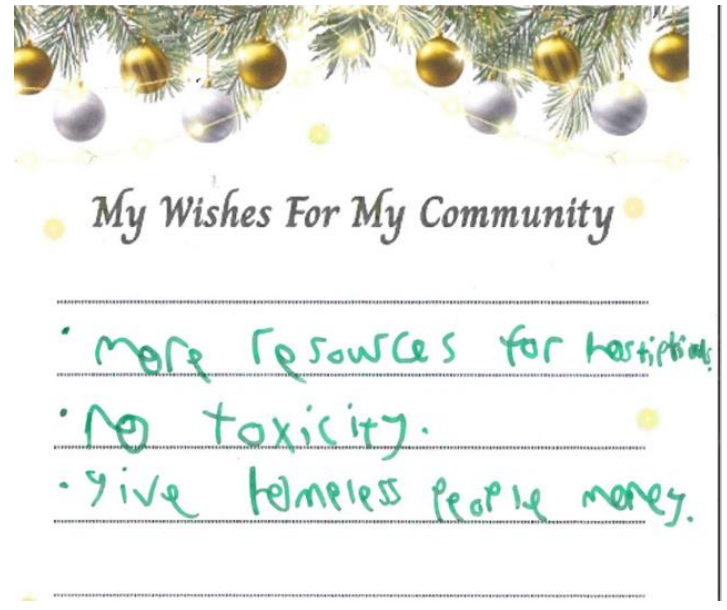 My Wishes For My Community
• More resources for hostipials.
• No toxicity.
• give homeless people money.